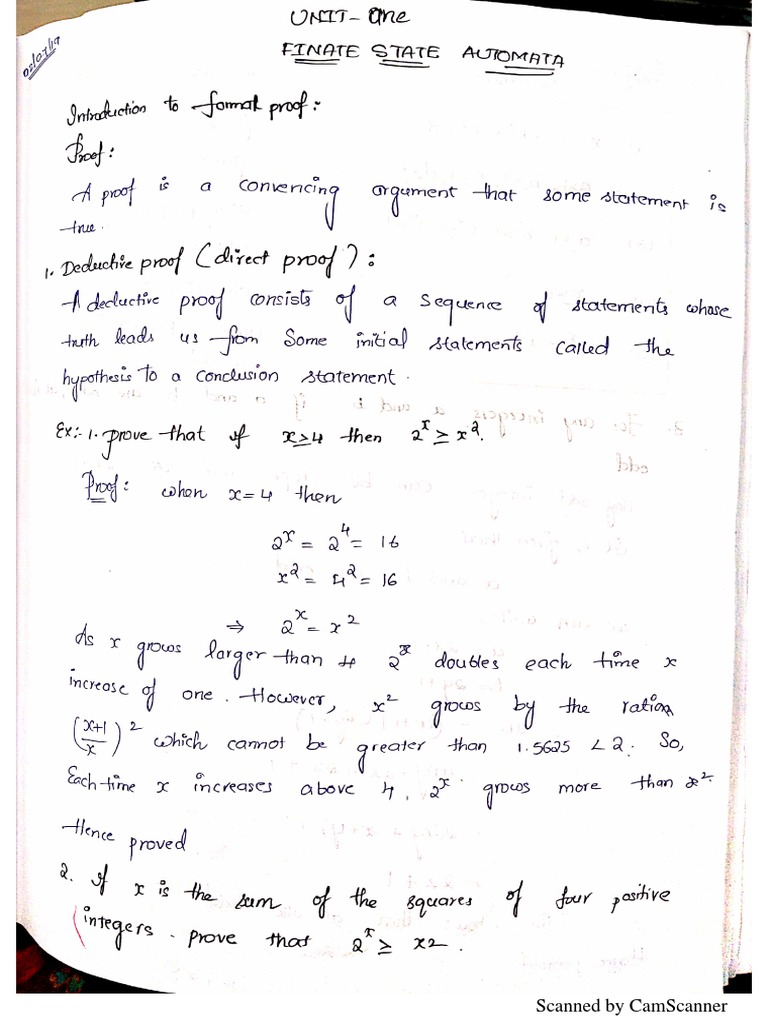 UNIT-One
02/07/19
FINATE STATE AUTOMATA
Introduction to formal proof:
Proof:
A proof is a convencing argument that some statement is
true.
1. Deductive proof (direct proof):
A deductive proof consists of a sequence of statements whose
truth leads us from some initial statements called the
hypothesis to a conclusion statement.
Ex:- 1. prove that if x≥4 then 2^x ≥ x^2.
Proof: when x=4 then
2^x = 2^4 = 16
x^2 = 4^2 = 16
⇒ 2^x = x^2
As x grows larger than 4 2^x doubles each time x
increase of one. However, x^2 grows by the ration
((x+1)/x)^2 which cannot be greater than 1.5625 < 2. So,
Each time x increases above 4, 2^x grows more than x^2.
Hence proved
2. if x is the sum of the squares of four positive
integers. prove that 2^x ≥ x2.
Scanned by CamScanner